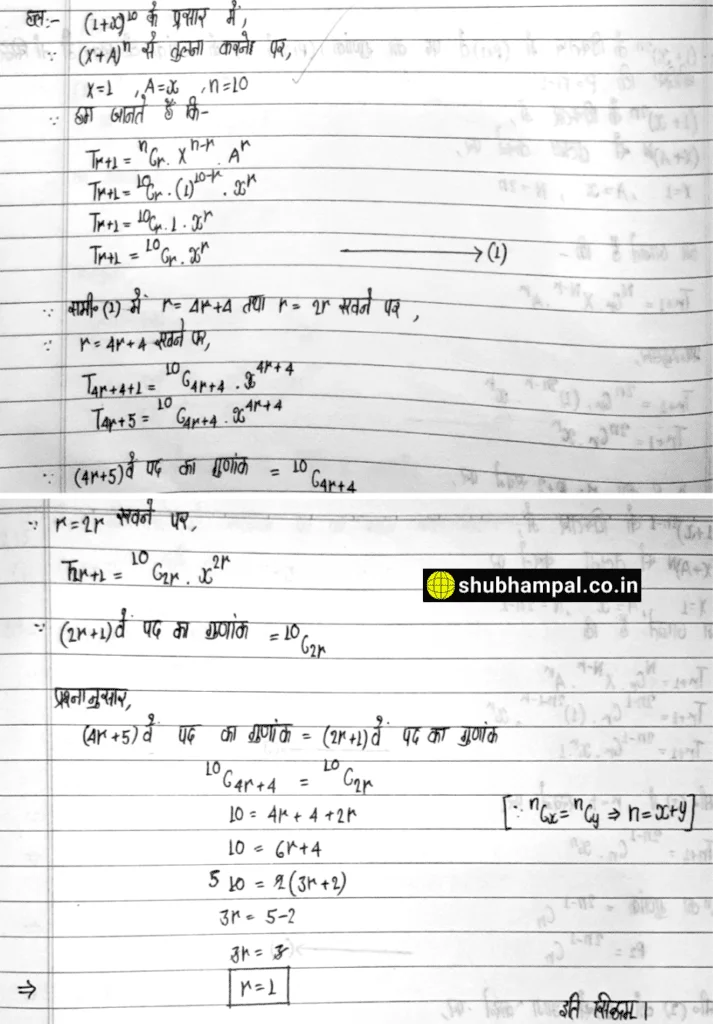 हल:- (1+x)¹⁰ के प्रसार में,
∵ (x+A)ⁿ से तुलना करने पर,
x=1 , A=x , n=10
∵ हम जानते हैं कि-
Tr+1 = ⁿCr . X^n-r . A^r
Tr+1 = ¹⁰Cr . (1)^10-r . x^r
Tr+1 = ¹⁰Cr . 1 . x^r
Tr+1 = ¹⁰Cr . x^r → (1)
∵ समी॰ (1) में r = 4r+4 तथा r = 2r रखने पर ,
∵ r = 4r+4 रखने पर,
T4r+4+1 = ¹⁰C4r+4 . x^4r+4
T4r+5 = ¹⁰C4r+4 . x^4r+4
∵ (4r+5) वें पद का गुणांक = ¹⁰C4r+4
∵ r=2r रखने पर,
T2r+1 = ¹⁰C2r . x^2r
shubhampal.co.in
∵ (2r+1) वें पद का गुणांक = ¹⁰C2r
प्रश्नानुसार,
(4r+5) वें पद का गुणांक = (2r+1) वें पद का गुणांक
¹⁰C4r+4 = ¹⁰C2r
10 = 4r + 4 + 2r [∵ ⁿCx = ⁿCy ⇒ n = x+y]
10 = 6r+4
5 10 = 2(3r+2)
3r = 5-2
3r = 3
⇒ r = 1
इति सिद्धम् ।